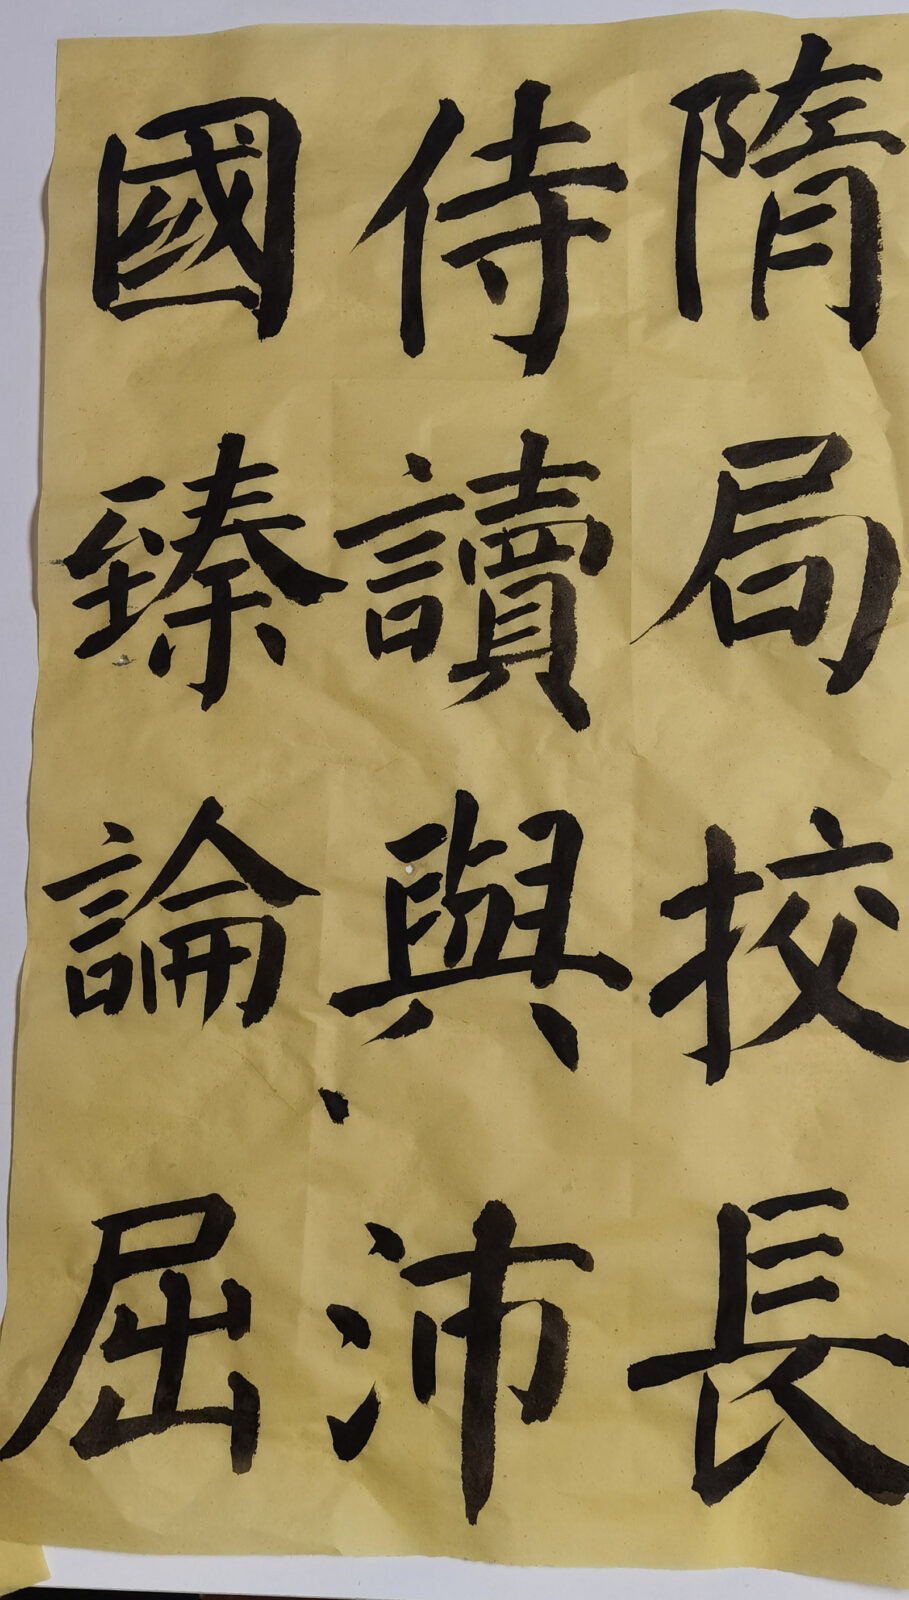 隋局挍長
侍讀與沛
國臻論屈